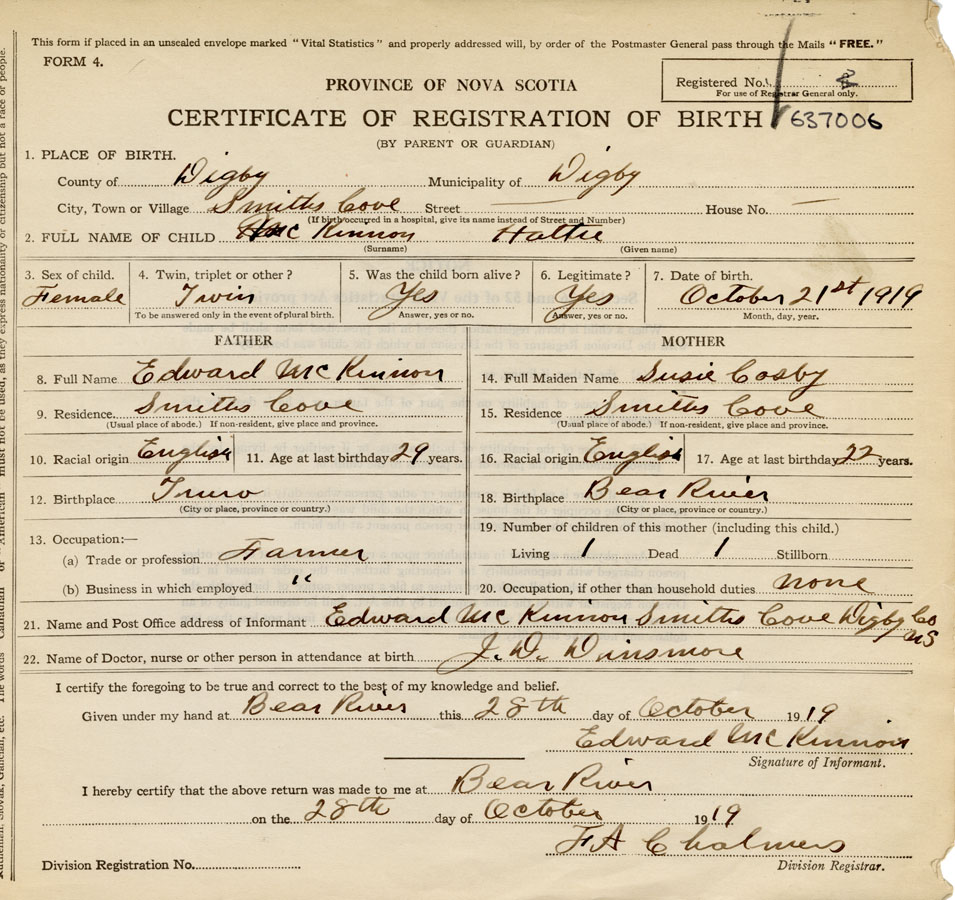 This form if placed in an unsealed envelope marked "Vital Statistics" and properly addressed will, by order of the Postmaster General pass through the Mails "FREE."
FORM 4.
Registered No.
For use of Registrar General only.
PROVINCE OF NOVA SCOTIA
CERTIFICATE OF REGISTRATION OF BIRTH 637006
(BY PARENT OR GUARDIAN)
1. PLACE OF BIRTH.
County of Digby Municipality of Digby
City, Town or Village Smiths Cove Street — House No. —
(If birth occurred in a hospital, give its name instead of Street and Number)
2. FULL NAME OF CHILD McKinnon Hattie
(Surname) (Given name)
3. Sex of child. 4. Twin, triplet or other? 5. Was the child born alive? 6. Legitimate? 7. Date of birth.
Female Twin Yes Yes October 21st 1919
To be answered only in the event of plural birth. Answer, yes or no. Answer, yes or no. Month, day, year.
FATHER MOTHER
8. Full Name Edward McKinnon 14. Full Maiden Name Susie Cosby
9. Residence Smiths Cove 15. Residence Smiths Cove
(Usual place of abode.) If non-resident, give place and province. (Usual place of abode.) If non-resident, give place and province.
10. Racial origin English 11. Age at last birthday 29 years. 16. Racial origin English 17. Age at last birthday 22 years.
12. Birthplace Truro 18. Birthplace Bear River
(City or place, province or country.) (City or place, province or country.)
13. Occupation:— 19. Number of children of this mother (including this child.)
(a) Trade or profession Farmer Living 1 Dead 1 Stillborn
(b) Business in which employed " 20. Occupation, if other than household duties none
21. Name and Post Office address of Informant Edward McKinnon Smiths Cove Digby Co
NS
22. Name of Doctor, nurse or other person in attendance at birth J. W. Dinsmore
I certify the foregoing to be true and correct to the best of my knowledge and belief.
Given under my hand at Bear River this 28th day of October 1919
Edward McKinnon
Signature of Informant.
I hereby certify that the above return was made to me at Bear River
on the 28th day of October 1919
F A Chalmers
Division Registration No. Division Registrar.